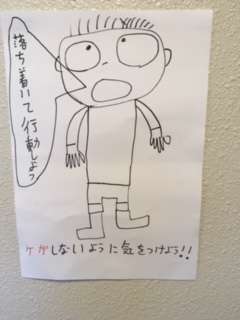 落ち着いて行動しよう
ケガしないように気をつけよう!!